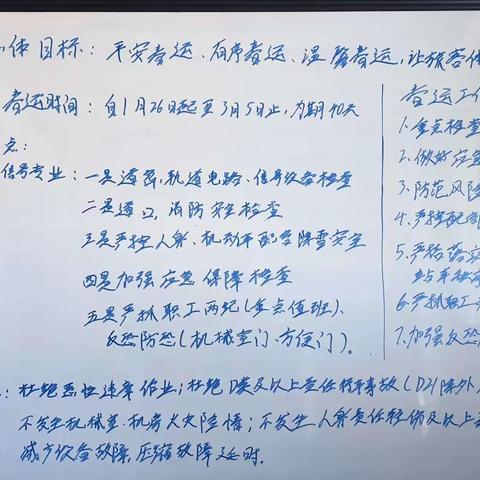 体目标：平安春运、有序春运、温馨春运，让旅客体
春运时间：自1月26日起至3月5日止，为期40天
点：
信号专业：一是道岔、轨道电路、信号设备检查
二是道口，消防安全检查
三是严控人身、机动车配合除雪安全
四是加强应急保障检查
五是严抓职工两纪(重点值班)、
反恐防恐(机械室门、方便门)。
春运工作
1.重点检查
2.做好应急
3.防范风险
4.严控配合
5.严格落实
站车
6.严抓职工
7.加强反恐
：杜绝恶性违章作业；杜绝D类及以上责任行车事故(D21除外)
不发生机械室、机房火灾险情；不发生人身责任轻伤及以上
减少设备故障，压缩故障延时.